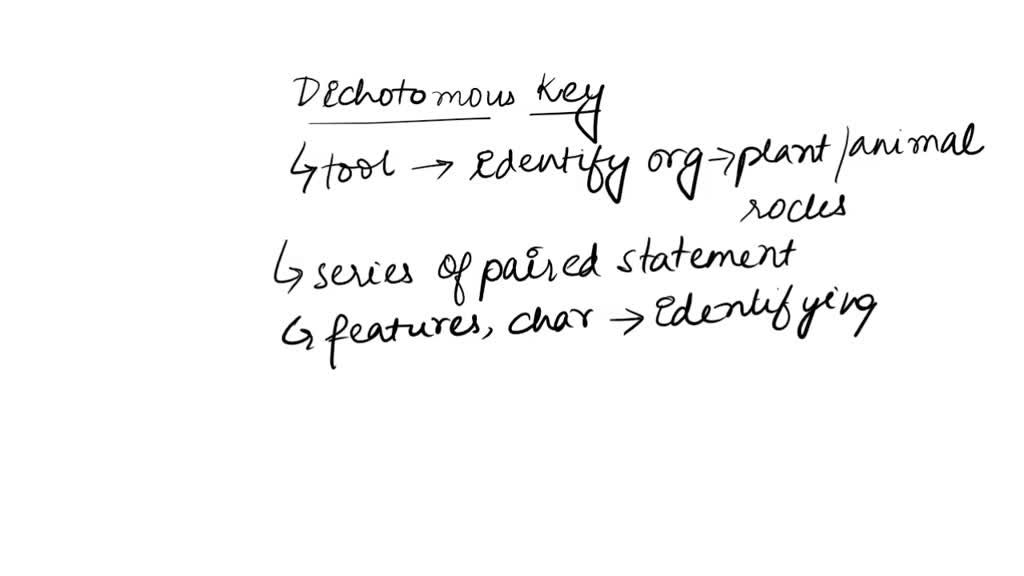 Dichotomous Key
↳ tool → identify org → plant/animal
rocks
↳ series of paired statement
↳ features, char → identifying